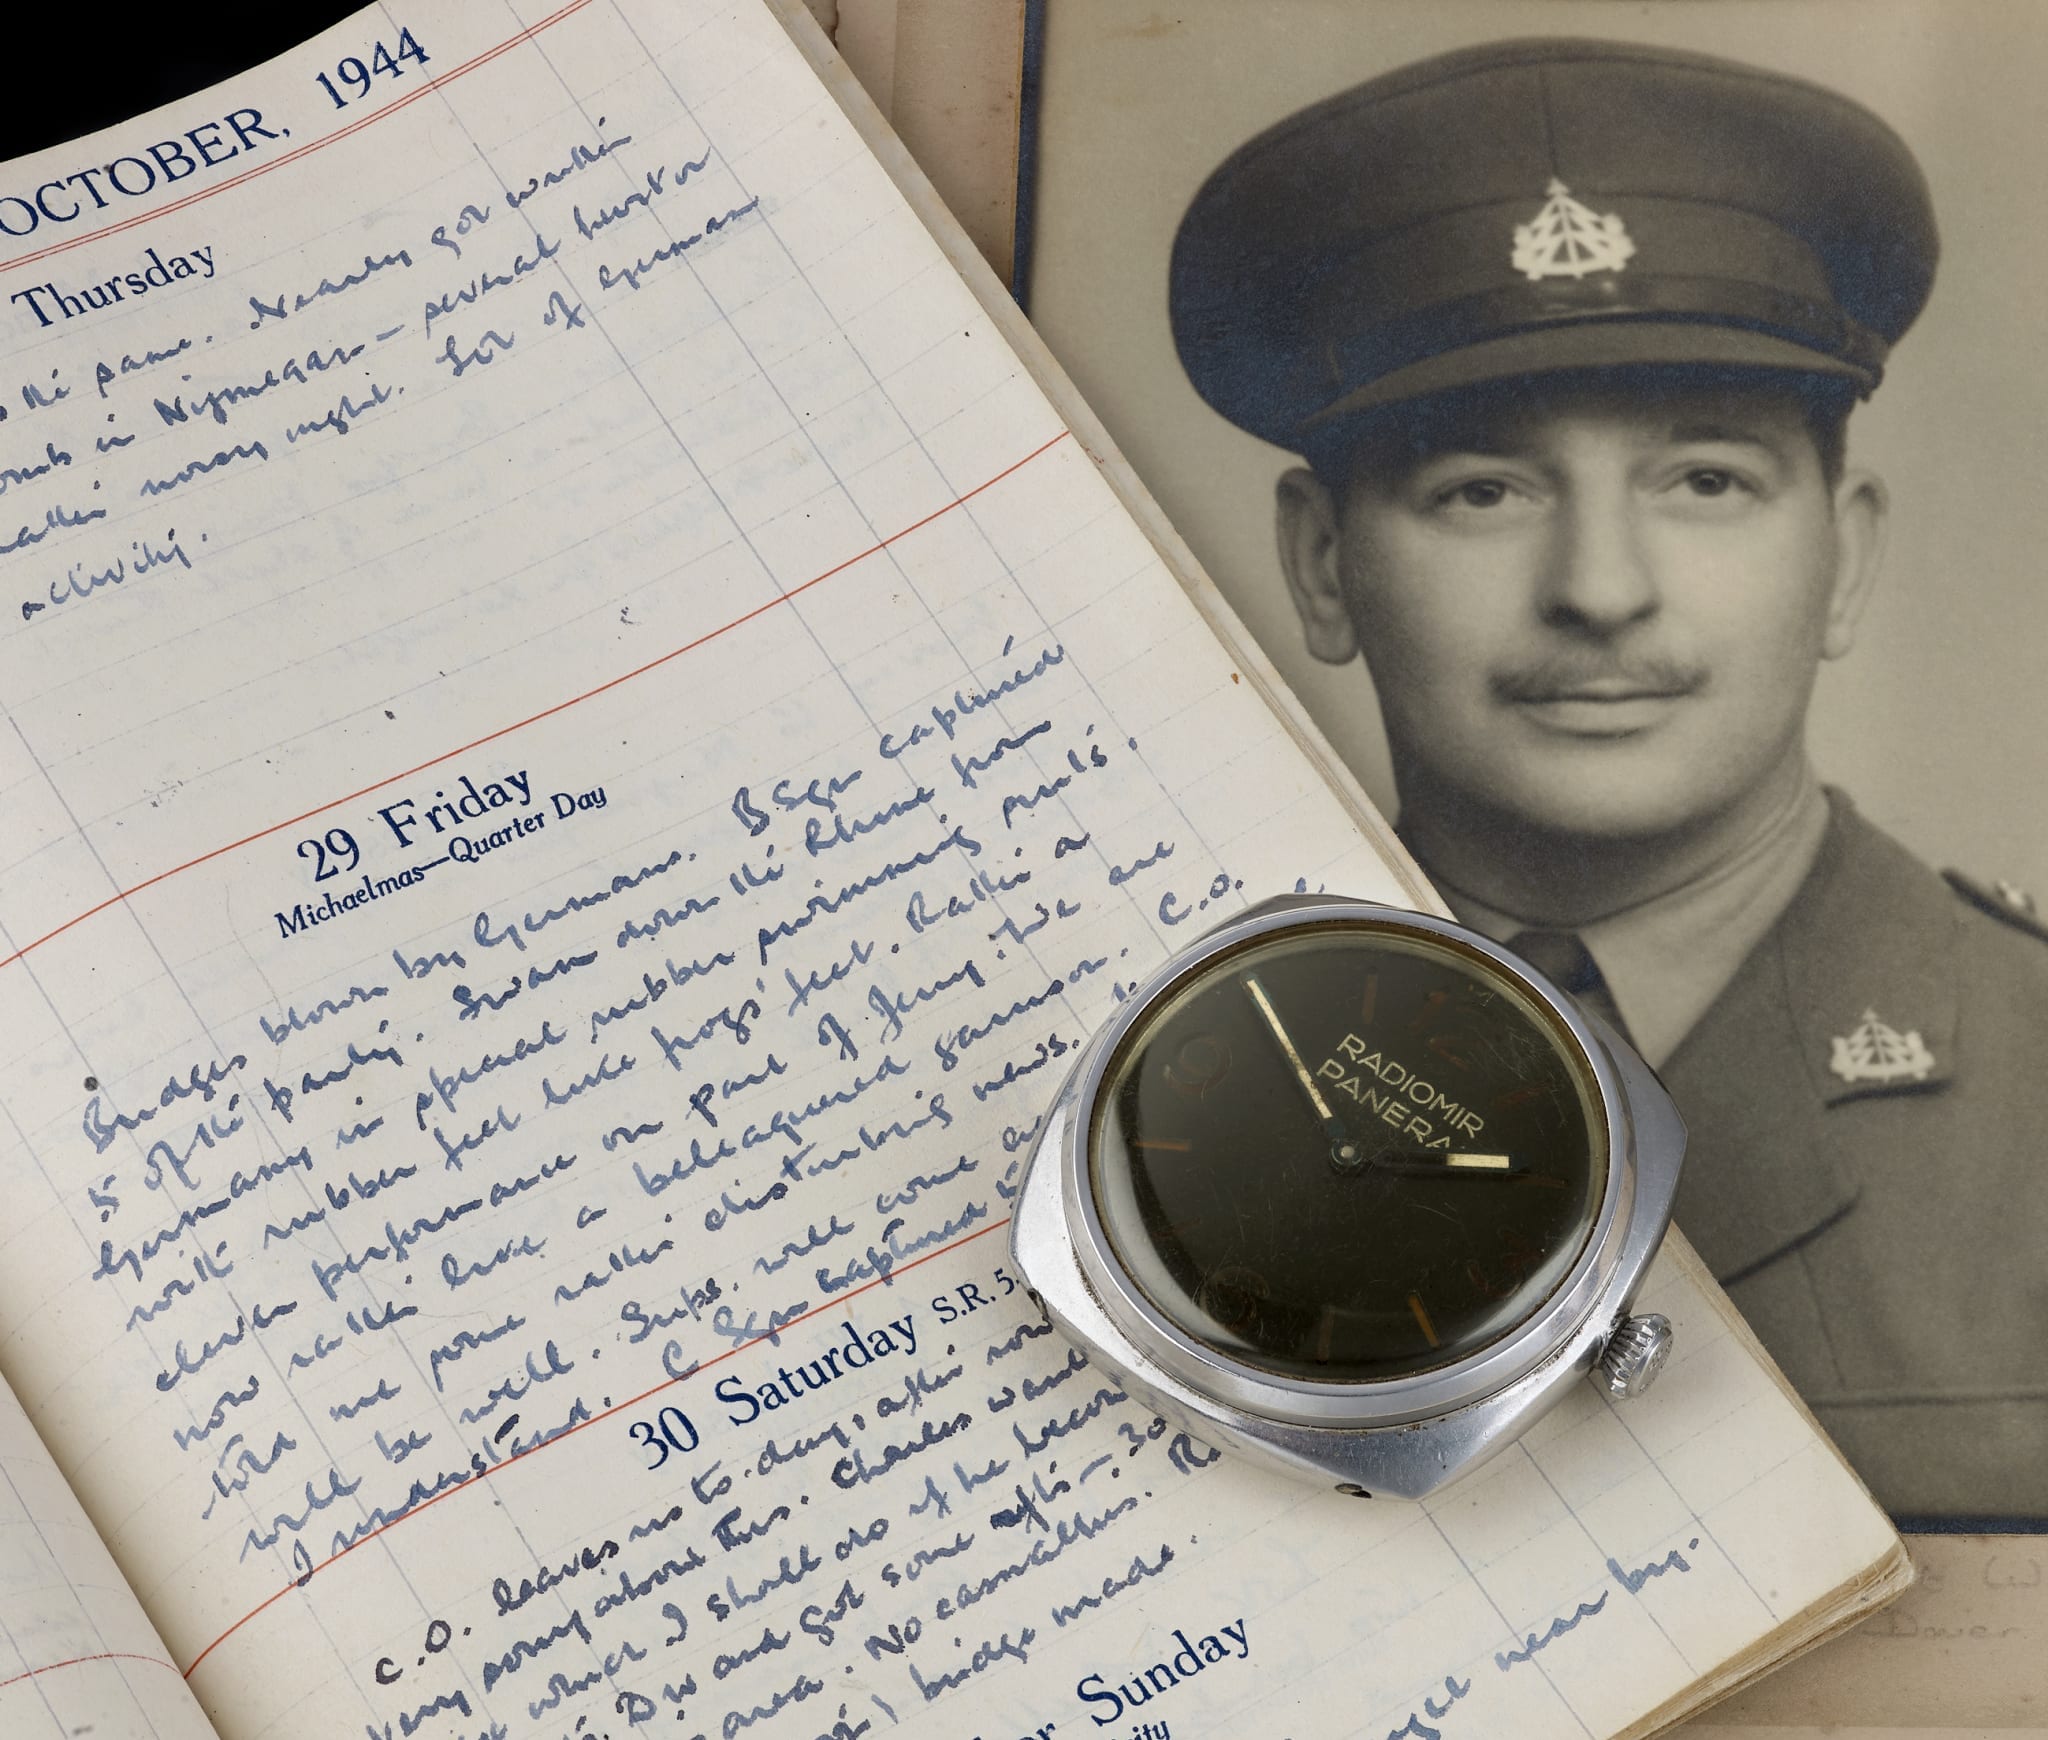 OCTOBER, 1944
Thursday
same. Nearly got
in Nijmegen - several hurt or
noisy night. Lot of German
activity.
29 Friday
Michaelmas—Quarter Day
Bridges blown by Germans. B Sqn captured
5 of the party. Swam down the Rhine from
Germany in special rubber swimming suits.
with rubber feet like frogs' feet. Rather a
clever performance on part of Jerry. We are
now rather like a beleaguered garrison. C.O.
told me some rather disturbing news.
will be well. Sups. will come
I understand. C Sqn captured
30 Saturday S.R. 5.
C.O. leaves us to-day, after
Very sorry about this. Charles
which I shall do if he
and got some 30
area. No casualties.
bridge made.
Sunday
near by.
RADIOMIR
PANERAI